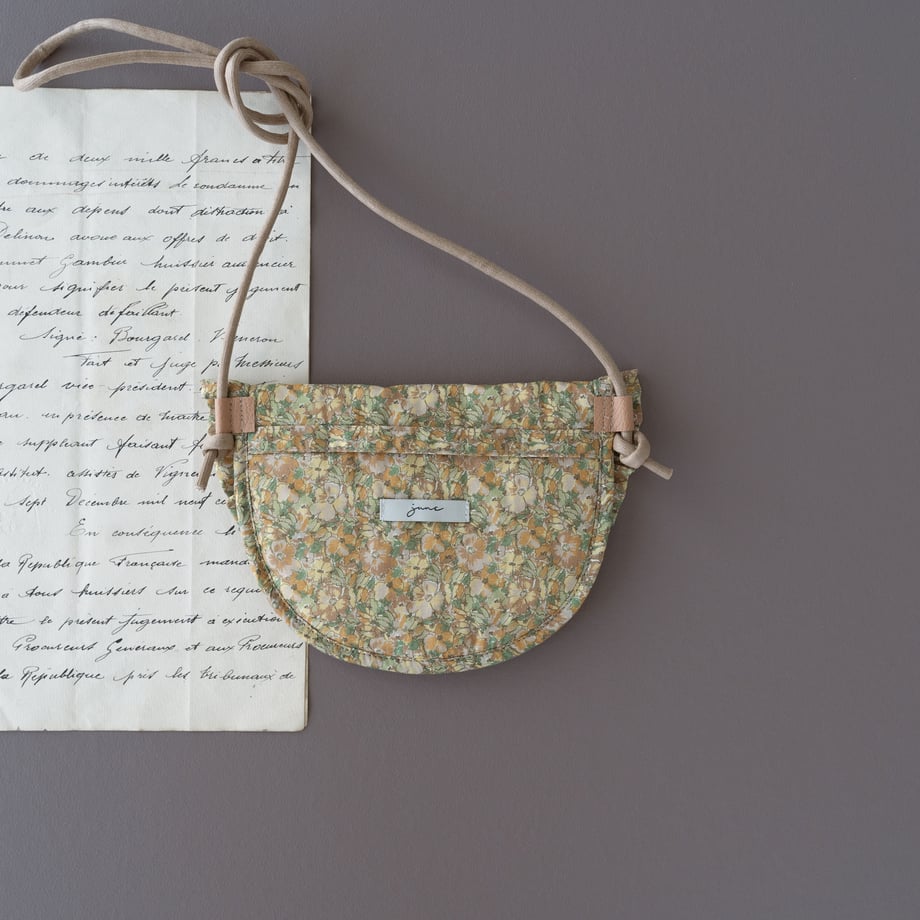 de deux mille francs à titre
dommages intérêts le condamne en
aux dépens dont distraction à
avoué aux offres de droit.
huissier audiencier
pour signifier le présent jugement
défendeur défaillant
Signé : Bourgarel. Vigneron
Fait et jugé par Messieurs
vice-président.
en présence de Maître
suppléant faisant
assistés de Vigner
sept Décembre mil neuf ce
En conséquence
la République Française mand
à tous huissiers sur ce requi
le présent jugement à exécution
Procureurs Généraux et aux Procureurs
la République près les tribunaux de
june